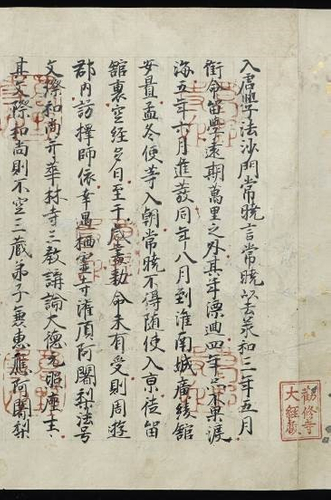 入唐學法沙門常曉言常曉以去承和三年五月
銜命留學遠期萬里之外其年漂廻四年亦不果渡
海五年六月進發同年八月到淮南城廣綾館
安置孟冬使等入朝常曉不得隨使入京徒留
館裏空經多日至于歲盡勅命未有受則周遊
郡內訪擇師依幸遇栖靈寺灌頂阿闍梨法号
文璨和尚并華林寺三教講論大德元照座主
其文璨和尚則不空三藏弟子兼惠應阿闍梨
勸修寺
大經藏